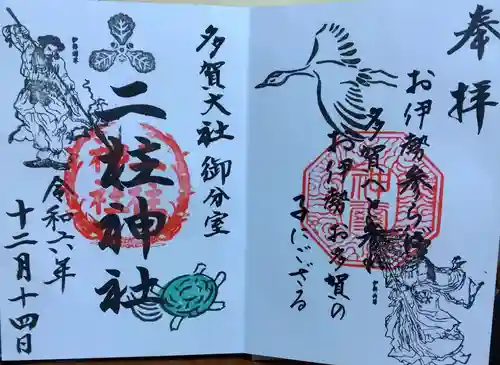 奉拝
お伊勢参らば
多賀へと参れ
お伊勢お多賀の
子でござる
多賀大社御分室
二柱神社
令和六年
十二月十四日